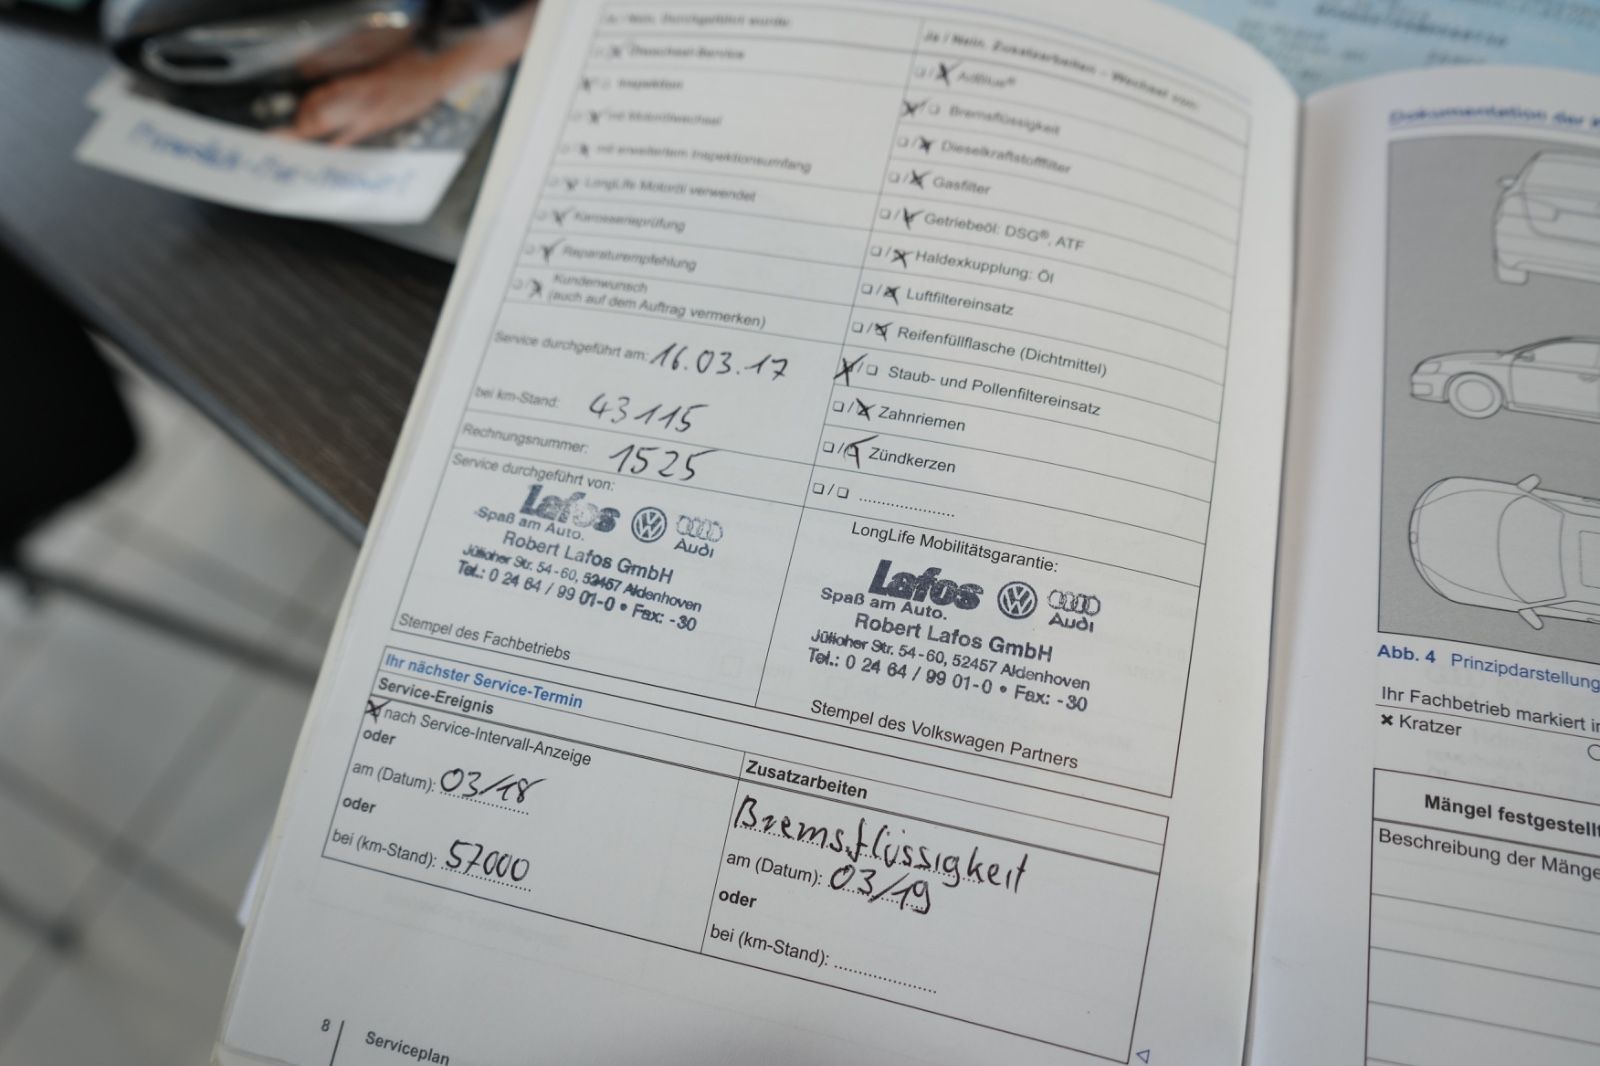 Ja / Nein. Durchgeführt wurde:
Ölwechsel-Service
Inspektion
mit Motorölwechsel
mit erweitertem Inspektionsumfang
LongLife Motoröl verwendet
Karosserieprüfung
Reparaturempfehlung
Kundenwunsch
(auch auf dem Auftrag vermerken)
Service durchgeführt am: 16.03.17
bei km-Stand: 43115
Rechnungsnummer: 1525
Service durchgeführt von:
Lafos
Spaß am Auto.
Audi
Robert Lafos GmbH
Jülicher Str. 54-60, 52457 Aldenhoven
Tel.: 0 24 64 / 99 01-0 • Fax: -30
Stempel des Fachbetriebs
Ja / Nein. Zusatzarbeiten – Wechsel von:
AdBlue®
Bremsflüssigkeit
Dieselkraftstofffilter
Gasfilter
Getriebeöl: DSG®, ATF
Haldexkupplung: Öl
Luftfiltereinsatz
Reifenfüllflasche (Dichtmittel)
Staub- und Pollenfiltereinsatz
Zahnriemen
Zündkerzen
LongLife Mobilitätsgarantie:
Lafos
Spaß am Auto.
Audi
Robert Lafos GmbH
Jülicher Str. 54-60, 52457 Aldenhoven
Tel.: 0 24 64 / 99 01-0 • Fax: -30
Stempel des Volkswagen Partners
Ihr nächster Service-Termin
Service-Ereignis
nach Service-Intervall-Anzeige
oder
am (Datum): 03/18
oder
bei (km-Stand): 57000
Zusatzarbeiten
Bremsflüssigkeit
am (Datum): 03/19
oder
bei (km-Stand):
8
Serviceplan
Dokumentation der
Abb. 4 Prinzipdarstellung
Ihr Fachbetrieb markiert
Kratzer
Mängel festgestellt
Beschreibung der Mängel